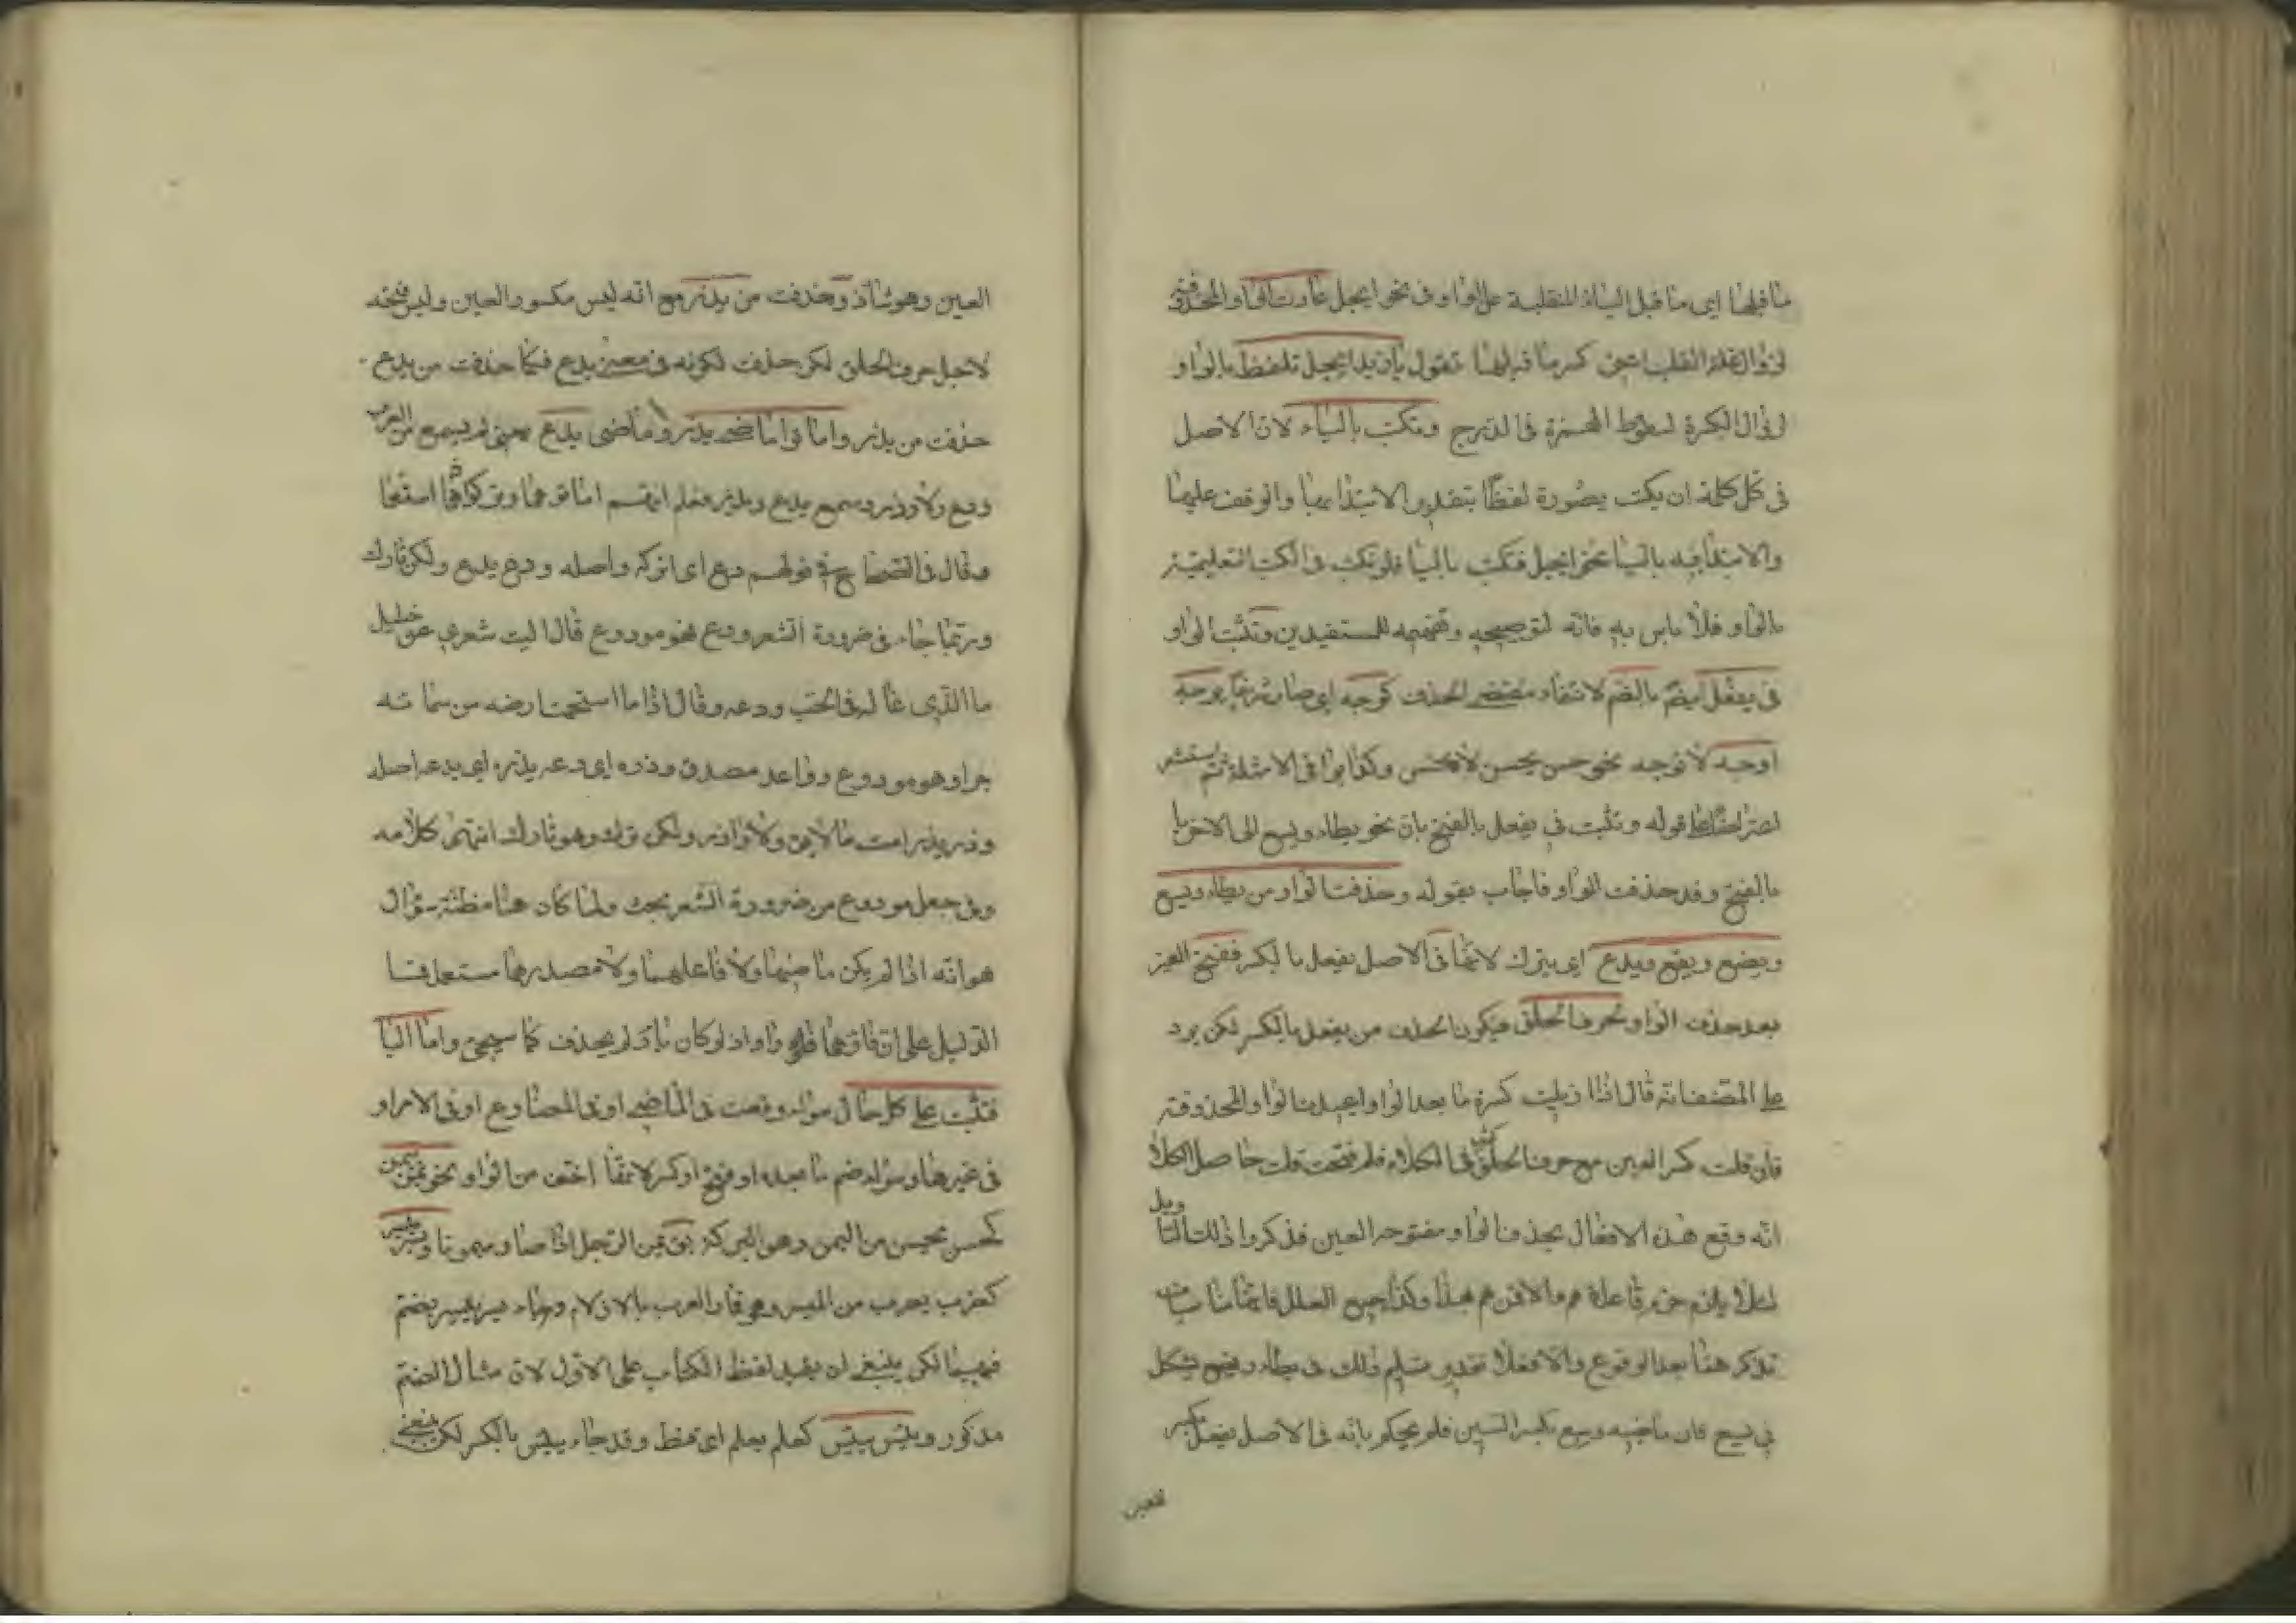 ما قبلها اى ما قبل الياء المنقلبة عن الواو فى نحو ايجل عادت الواو المحذوفة
لزوال علة القلب اعنى كسر ما قبلها تقول يا زيد ايجل تلفظ بالواو
لزوال الكسرة لسقوط الهمزة فى الدرج وتكتب بالياء لان الاصل
فى كل كلمة ان يكتب بصورة لفظها بتقدير الابتداء بها والوقف عليها
والابتداء فيه بالياء نحو ايجل فتكتب بالياء فلو تكتب فى الكتب التعليمية
بالواو فلا باس به فانه لتوضيحه وتفهيمه للمستفيدين وتثبت الواو
فى يفعل ايضم بالضم لانتفاء مقتضى الحذف كوجه اى صار شريفا يوجه
اوجه لا توجه نحو حسن يحسن لا تحسن وكذا بواقى الامثلة ثم استشعر
اعتراضا على قوله وتثبت فى يفعل بالفتح بان نحو يطاء ويسع الى الاخر
بالفتح وقد حذفت الواو فاجاب بقوله وحذفت الواو من يطاء ويسع
ويضع ويقع ويدع اى يترك لانها فى الاصل يفعل بالكسر ففتح العين
بعد حذف الواو لحرف الحلق فيكون الحذف من يفعل بالكسر لكن يرد
على المصنف انه قال اذا ازيلت كسرة ما بعد الواو اعيدت الواو المحذوفة
فان قلت كسر العين مع حرف الحلق كثير فى الكلام فلم فتحت قلت حاصل الكلام
انه وقع هذه الافعال بحذف الواو مفتوحة العين فذكروا ذلك التاويل
لئلا يلزم خرم قاعدتهم والا فمن لهم هذا وكذا جميع العلل فانها مناسبات
تذكر هنا بعد الوقوع والا فعلى تقدير تسليم ذلك فى يطاء ويضع يشكل
فى يسع فان ماضيه وسع بكسر السين فلم يحكم بانه فى الاصل يفعل بكسر
العين
العين وهو شاذ وحذفت من يذر مع انه ليس مكسور العين وليس فتحه
لاجل حرف الحلق لكن حذفت لكونه فى معنى يدع فكما حذفت من يدع
حذفت من يذر واماتوا ماضى يذر وماضى يدع يعنى لم يسمع من العرب
ودع ولا وذر وسمع يدع ويذر فعلم انهم اماتوهما وتركوا استعمالهما
وقال فى الصحاح فى قولهم دع اى اتركه واصله ودع يدع ولكن تارك
وربما جاء فى ضرورة الشعر ودع نحو مودوع قال ليت شعرى عن خليلى
ما الذى غاله فى الحب ودعه وقال اذا ما استحمت ارضه من سمائه
جرا وهو مودوع وواعد مصدق وذره اى دعه يذره اى يدعه اصله
وذر يذر اميت ماضيه ولا واذر ولكن ترك وهو تارك انتهى كلامه
وفى جعل مودوع من ضرورة الشعر بحث ولما كان هنا مظنة سؤال
هو انه اذا لم يكن ماضيهما ولا فاعلهما ولا مصدرهما مستعملا فما
الدليل على ان فاءهما واو اذ لو كان ياء لم يحذف كما سيجئ واما الياء
فتثبت على كل حال سواء وقعت فى الماضى او فى المضارع او فى الامر او
فى غيرها وسواء ضم ما بعده او فتح او كسر لانها اخف من الواو نحو يمن ييمن
كحسن يحسن من اليمن وهو البركة يمن الرجل اذا صار ميمونا ويسر ييسر
كضرب يضرب من الميسر وهو قمار العرب بالازلام وجاء يسر ييسر بضم
فيهما لكن ينبغى ان يقيد لفظ الكتاب على الاول لان مثال الضم
مذكور ويئس ييئس كعلم يعلم اى قنط وقد جاء ييئس بالكسر لكن ينبغى